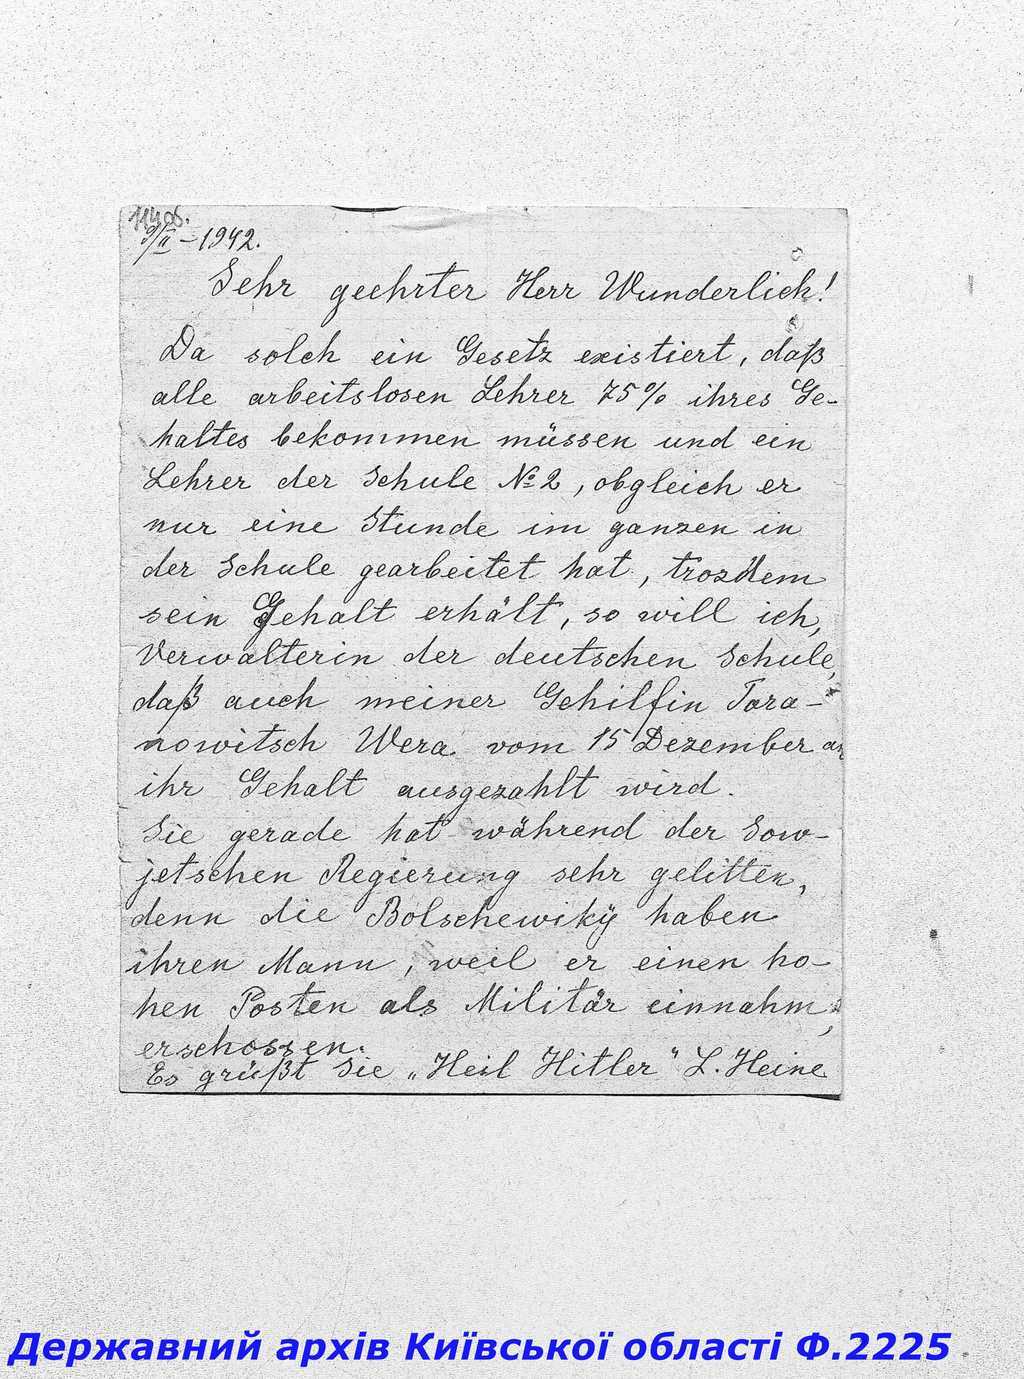 114об.
9/II – 1942.
Sehr geehrter Herr Wunderlich!
Da solch ein Gesetz existiert, daß
alle arbeitslosen Lehrer 75% ihres Ge-
haltes bekommen müssen und ein
Lehrer der Schule № 2, obgleich er
nur eine Stunde im ganzen in
der Schule gearbeitet hat, trozdem
sein Gehalt erhält, so will ich,
Verwalterin der deutschen Schule,
daß auch meiner Gehilfin Tara-
nowitsch Wera vom 15 Dezember an
ihr Gehalt ausgezahlt wird.
Sie gerade hat während der Sow-
jetschen Regierung sehr gelitten,
denn die Bolschewiky haben
ihren Mann, weil er einen ho-
hen Posten als Militär einnahm,
erschossen.
Es grüßt Sie „Heil Hitler" L. Heine
Державний архів Київської області Ф.2225